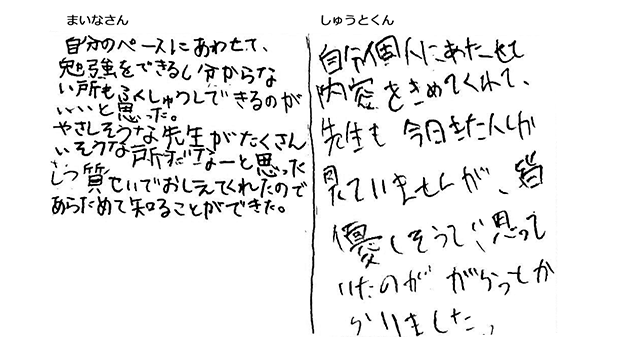 まいなさん
自分のペースにあわせて、
勉強をできるし分からな
い所もふくしゅうしできるのが
いいと思った。
やさしそうな先生がたくさん
いそうな所だなーと思った
しつ質せいでおしえてくれたので
あらためて知ることができた。
しゅうとくん
自分個人にあたせて
内容をきめてくれて、
先生も今日きた人しか
見ていませんが、皆
優しそうで、思って
いたのが がらっとか
わりました。